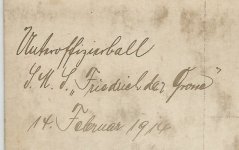 Unteroffizierball
S.M.S. „Friedrich der Grosse"
14. Februar 1914